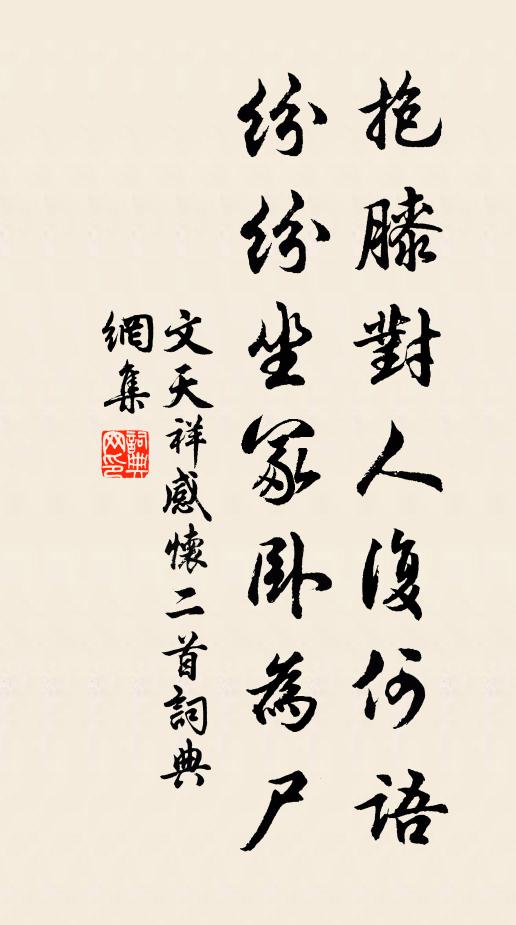 抱膝對人復何語
紛紛坐冢臥為尸
文天祥感懷二首詞典
網集
詞典网印